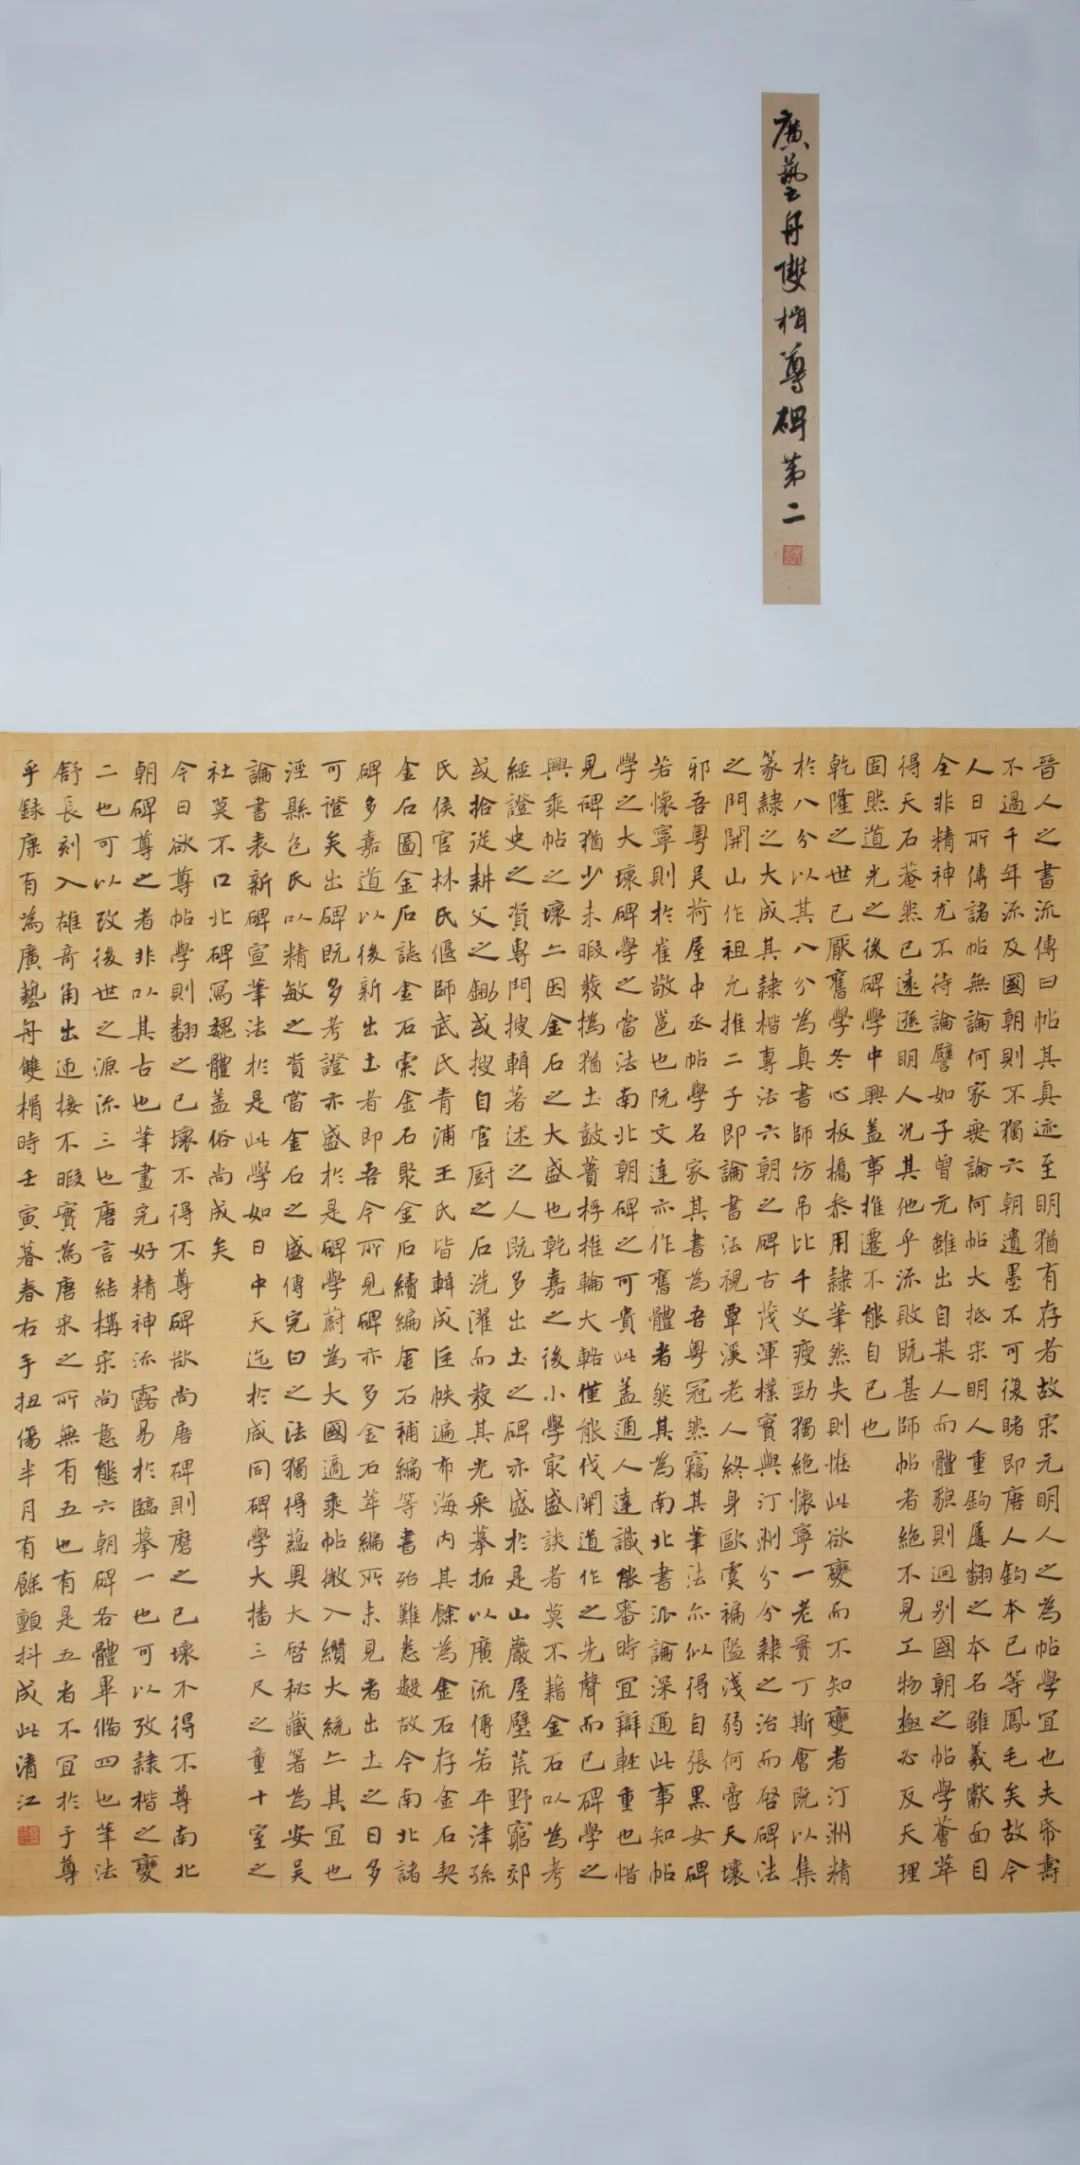 廣藝舟雙楫尊碑第二
晋人之書流傳曰帖其真迹至明猶有存者故宋元明人之為帖學宜也夫帋壽
不過千年流及國朝則不獨六朝遺墨不可復睹即唐人鈎本已等鳳毛矣故今
人日所傳諸帖無論何家無論何帖大抵宋明人重鈎屢翻之本名雖羲獻面目
全非精神尤不待論譬如子曾元雖出自某人而體貌則迥别國朝之帖學薈萃
得天石菴然已遠遜明人况其他乎流敗既甚師帖者絕不見工物極必反天理
固然道光之後碑學中興蓋事推遷不能自已也
乾隆之世已厭舊學冬心板橋叅用隸筆然失則恠此欲變而不知變者汀洲精
於八分以其八分為真書師仿吊比千文瘦勁獨絕懷寧一老實丁斯會既以集
篆隸之大成其隸楷專法六朝之碑古茂渾樸實與汀洲分隸之治而啓碑法
之門開山作祖允推二子即論書法視覃溪老人終身歐虞褊隘淺弱何啻天壤
邪吾粤吴荷屋中丞帖學名家其書為吾粤冠然窺其筆法亦似得自張黑女碑
若懷寧則於崔敬邕也阮文達亦作舊體者然其為南北書派論深通此事知帖
學之大壞碑學之當法南北朝碑之可貴此蓋通人達識能審時宜辯輊重也惜
見碑猶少未暇發撝猶土鼓蕢桴推輪大輅僅能伐開道作之先聲而已碑學之
興乘帖之壞亠因金石之大盛也乾嘉之後小學冣盛談者莫不藉金石以為考
經證史之資專門搜輯著述之人既多出土之碑亦盛於是山巖屋壁荒野窮郊
或拾從耕父之鋤或搜自官厨之石洗濯而發其光采摹拓以廣流傳若平津孫
氏侯官林氏偃師武氏青浦王氏皆輯成巨帙遍布海内其餘為金石存金石契
金石圖金石誌金石索金石聚金石續編金石補編等書殆難悉數故今南北諸
碑多嘉道以後新出土者即吾今所見碑亦多金石萃編所未見者出土之日多
可證矣出碑既多考證亦盛於是碑學蔚為大國適乘帖微入纘大統亠其宜也
涇縣包氏以精敏之資當金石之盛傳完白之法獨得蘊奥大啓秘藏著為安吴
論書表新碑宣筆法於是此學如日中天迄於咸同碑學大播三尺之童十室之
社莫不口北碑寫魏體蓋俗尚成矣
今日欲尊帖學則翻之已壞不得不尊碑欲尚唐碑則磨之已壞不得不尊南北
朝碑尊之者非以其古也筆畫完好精神流露易於臨摹一也可以攷隸楷之變
二也可以攷後世之源流三也唐言結構宋尚意態六朝碑各體畢備四也筆法
舒長刻入雄奇角出迎接不暇實為唐宋之所無有五也有是五者不宜於于尊
乎錄康有為廣藝舟雙楫時壬寅暮春右手扭傷半月有餘顫抖成此清江